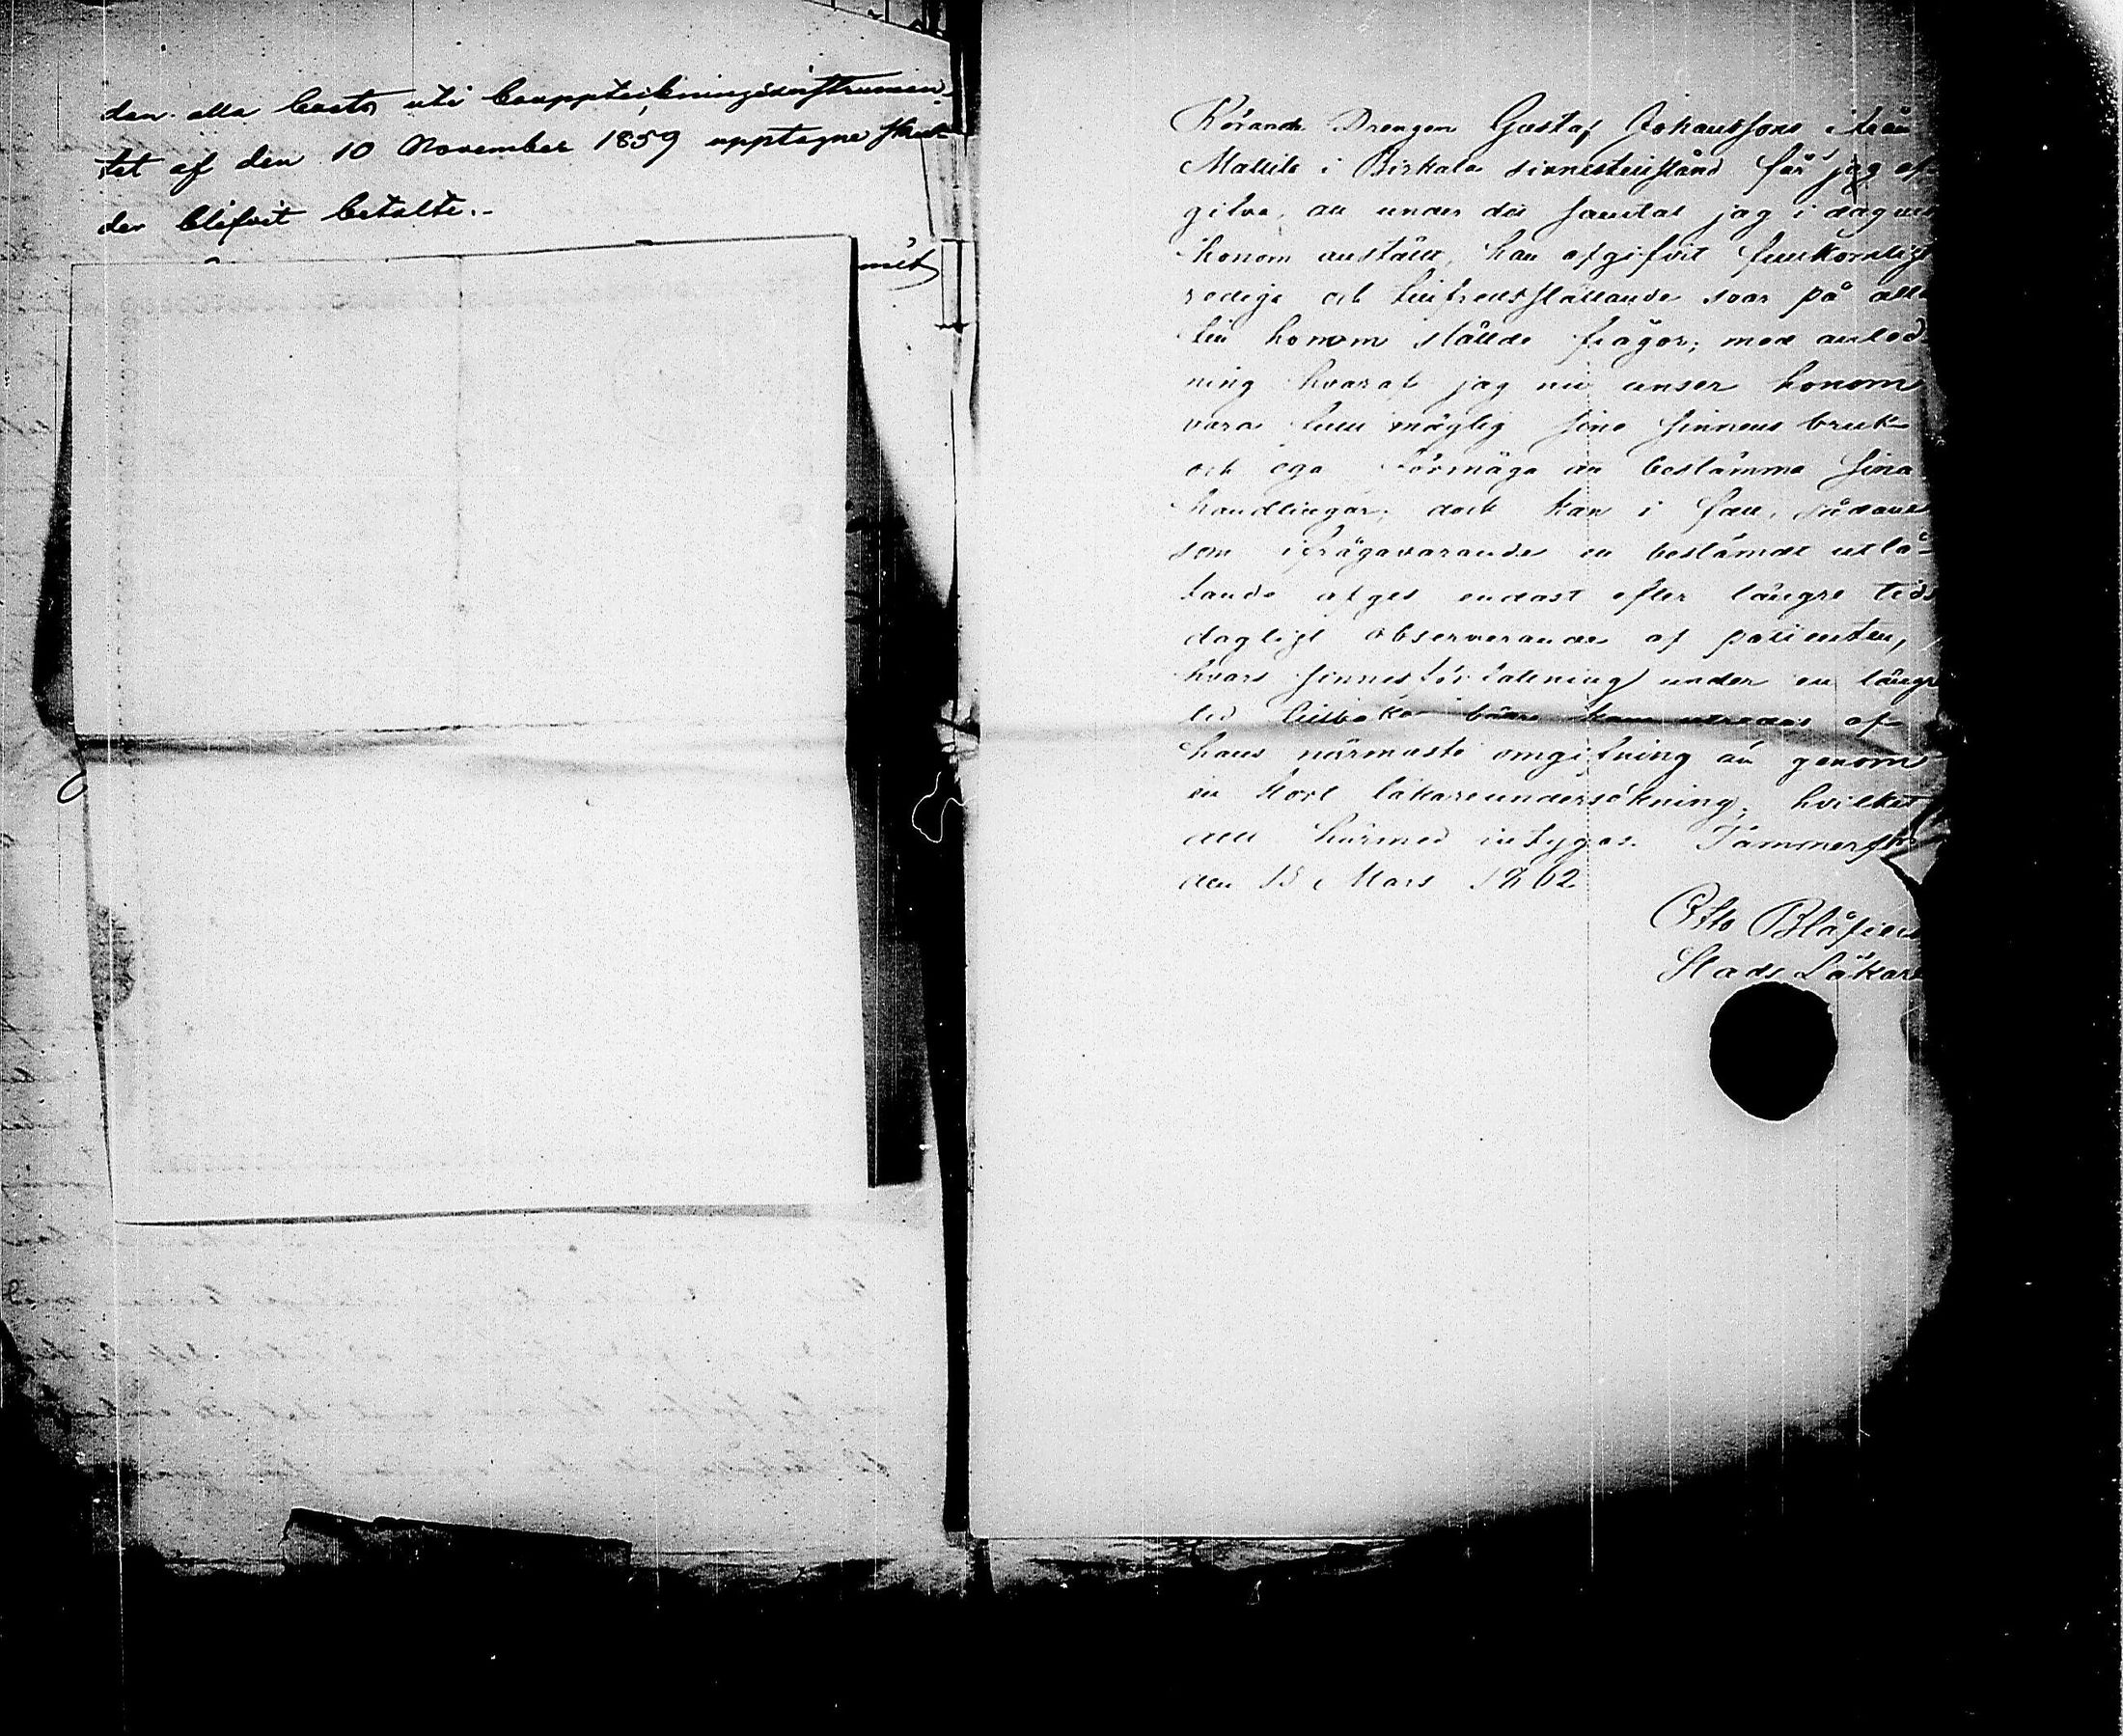 den alla borts uti bouppteckningsinstrumen-
tet af den 10 November 1859 upptagne skul-
der blifvit betalte.-
Rörande Drengen Gustaf Johanssons ifrån
Mattila i Birkala sinnestillstånd får jag af-
gifva, att under det samtal jag i dag med
honom anställt, han afgifvit fullkomligt
redige och tillfredsställande svar på alla
till honom ställde frågor; med anled-
ning hvaraf jag nu anser honom
vara fullt mägtig sine sinnens bruk
och ega förmåga att bestämma sina
handlingar; dock kan i fall, sådane
som ifrågavarande en bestämdt utlå-
tande afges endast efter längre tids
dagligt observerande af patienten,
hvars sinnesförfattning under en längre
tid tillbaka bättre kan utredas af
hans närmaste omgifning än genom
en kort läkareundersökning; hvilket
allt härmed intygas. Tammerfors
den 15 Mars 1862
Otto Blåfield
Stads Läkare